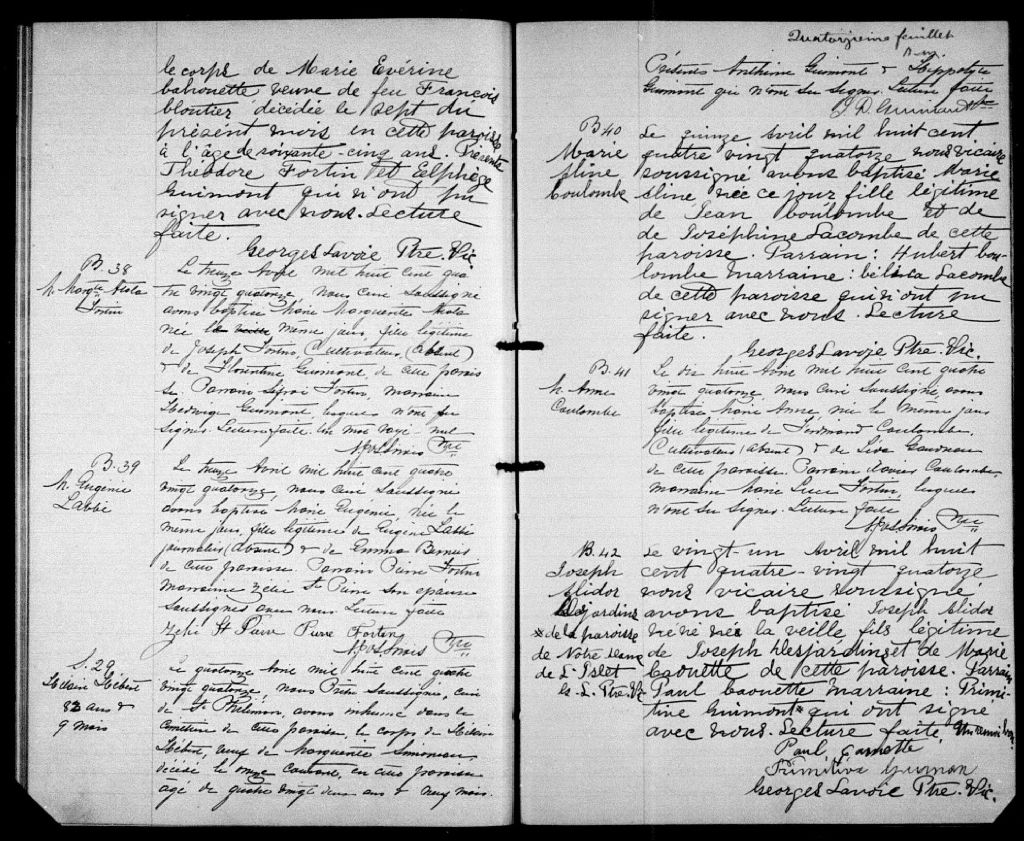 le corps de Marie Evérine
bahouette veuve de feu François
bloutier décédée le sept du
présent mois en cette paroisse
à l'âge de soixante-cinq ans. Présents
Théodore Fortin et Elphège
Guimont qui n'ont pu
signer avec nous. Lecture
faite.
Georges Lavoie Ptre. Vic
B. 38
M. Margte
Fortin
Le treize Avril mil huit cent qua
tre vingt quatorze nous curé soussigné
avons baptisé Marie Marguerite
née le même jour, fille légitime
de Joseph Fortin, (Cultivateur) (absent)
& de Florentine Guimont, de cette parois
se. Parrain Fortin, marraine
Hedwige Guimont, lesquels n'ont su
signer. Lecture faite. Un mot rayé nul
Ptre
B. 39
M. Eugénie
Labbé
Le treize Avril mil huit cent quatre
vingt quatorze, nous curé soussigné
avons baptisé Marie Eugénie, née le
même jour, fille légitime de Eugène Labbé
journalier (absent) & de Emma Bernier
de cette paroisse. Parrain Pierre Fortin
marraine Zélie St Pierre son épouse
soussignés avec nous Lecture faite
Zélie St Pierre Pierre Fortin
Ptre
S. 29
Hilaire Hébert
82 ans &
9 mois
Le quatorze Avril mil huit cent quatre
vingt quatorze, nous Prêtre soussigné, curé
de St Philémon, avons inhumé dans le
cimetière de cette paroisse, le corps de Hilaire
Hébert, veuf de Marguerite Simoneau
décédé le onze courant, en cette paroisse
âgé de quatre vingt deux ans & neuf mois.
Quatorzième feuillet
Présents Anthime Guimont & Hippolyte
Guimont qui n'ont su signer. Lecture faite
Ptre
B 40
Marie
Aline
boulombe
Le quinze Avril mil huit cent
quatre vingt quatorze nous vicaire
soussigné avons baptisé Marie
Aline, née ce jour fille légitime
de Jean boulombe et de
de Joséphine Lacombe de cette
paroisse. Parrain: Hubert bou-
lombe Marraine: Lacombe
de cette paroisse qui n'ont pu
signer avec nous. Lecture
faite.
Georges Lavoie Ptre. Vic.
B. 41
M. Anna
Coulombe
Le dix huit Avril mil huit cent quatre
vingt quatorze, nous curé soussigné, avons
baptisé Marie Anna, née le même jour
fille légitime de Ferdinand Coulombe,
(Cultivateur) (absent) & de Gaudreau
de cette paroisse. Parrain Xavier Coulombe
marraine Marie Luce Fortin, lesquels
n'ont su signer. Lecture faite
Ptre
B. 42
Joseph
Alidor
Desjardins
* de la paroisse
de Notre Dame
de L'Islet
G. L. Ptre. Vic
Le vingt-un Avril mil huit
cent quatre-vingt quatorze
nous vicaire soussigné
avons baptisé Joseph Alidor
né la veille fils légitime
de Joseph Desjardins et de Marie
baouette de cette paroisse. Parrain
Paul baouette marraine: Primi-
tive Guimont * qui ont signé
avec nous. Lecture faite. Un renvoi bon
Paul
Primitive
Georges Lavoie Ptre. Vic.